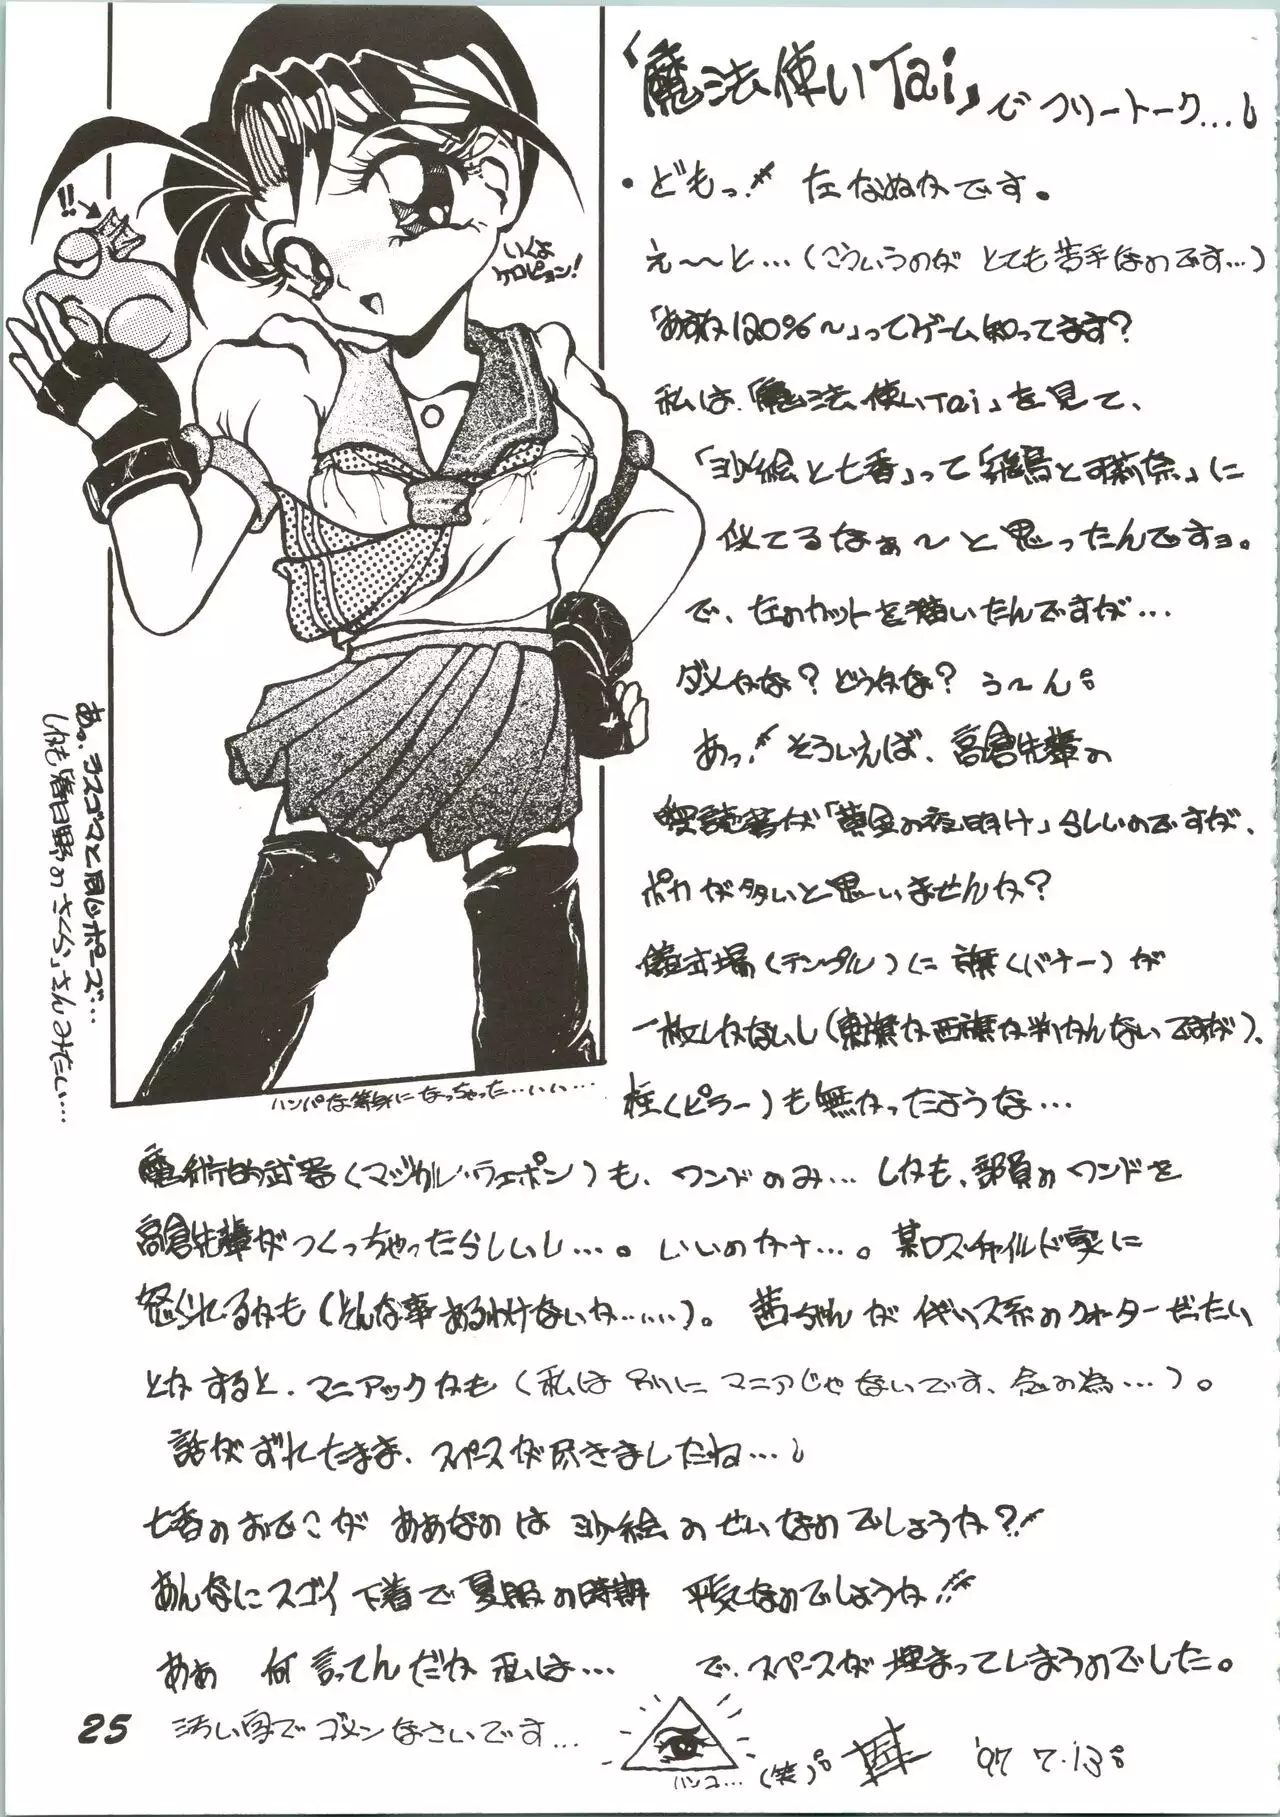 「魔法使いTai」でフリートーク…!
・どもっ! たなぬかです。
え〜〜と…(こういうのが とても苦手なのです…)
「あすか120%〜」ってゲーム知ってます?
私は「魔法使いTai」を見て、
「沙絵と七香」って「飛鳥と可莉奈」に
似てるなぁ〜と思ったんですョ。
で、左のカットを描いたんですが…
ダメかな?どうかな? う〜ん。
あっ!そういえば、高倉先輩の
愛読書が「黄金の夜明け」らしいのですが、
ポカが多いと思いませんか?
儀式場(テンプル)に旗(バナー)が
一枚しかないし(東旗か西旗か判かんないですが)、
柱(ピラー)も無かったような…
魔術的武器(マジカル・ウェポン)も、ワンドのみ… しかも、部員のワンドを
高倉先輩がつくっちゃったらしいし…。いいのかナ…。某ロスチャイルド家に
怒られるかも(そんな事あるわけないか……)。茜ちゃんがイギリス系のクォーターだったり
とかすると、マニアックかも(私は別にマニアじゃないです、念の為…)。
話がずれたまま、スペースが尽きましたね…!
七香のおでこが ああなのは 沙絵のせいなのでしょうか?!
あんなにスゴイ下着で夏服の時期 平気なのでしょうか!!
あぁ 何言ってんだか私は… で、スペースが埋まってしまうのでした。
汚い字でゴメンなさいです…
ハンコ…
(笑)。
'97 7.13。
25
!!
いくよ
ケロピョン!
あっ、ヨスゴマと同じポーズ…
しかも「春日野のさくら」さんみたい…
ハンパな等身になっちゃった……